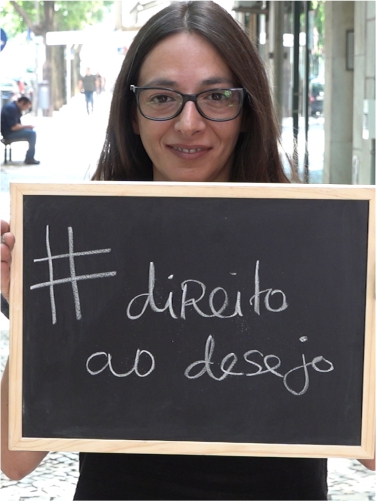 # diReito
ao desejo